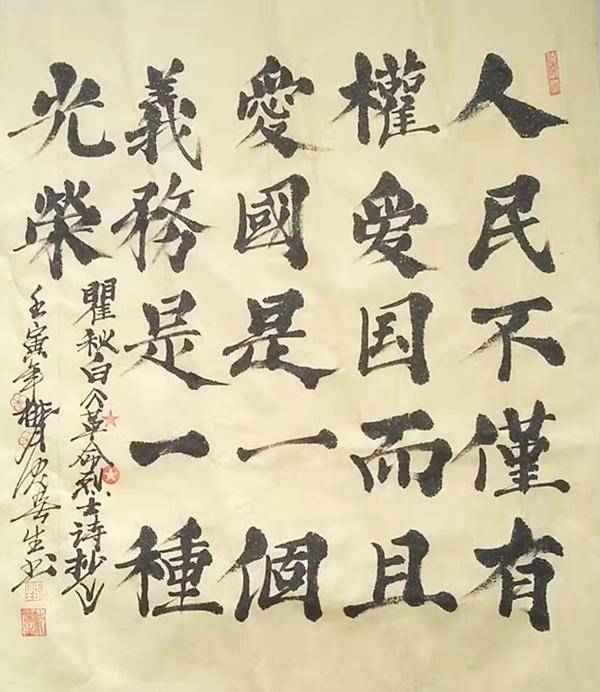 人民不僅有
權爱国而且
愛國是一個
義務是一種
光榮
瞿秋白《革命烈士詩抄》
壬寅年生书